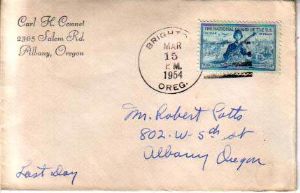 Carl H. Connet
2365 Salem Rd.
Albany, Oregon
BRIGHTO
MAR
15
P.M.
1954
OREG.
Mr. Robert Potts
802 W 5th st
Albany Oregon
Last Day